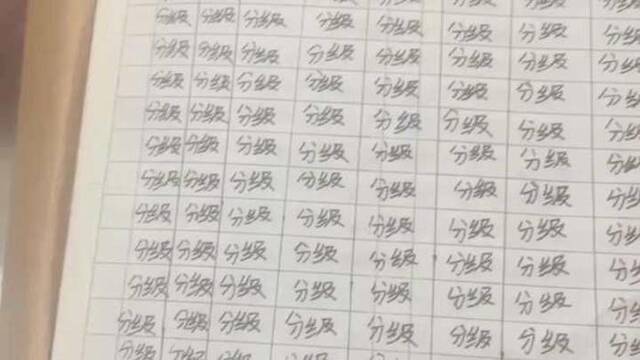 分级 分级 分级 分级 分级 分级 分级 分级
分级 分级 分级 分级 分级 分级 分级 分级
分级 分级 分级 分级 分级 分级 分级 分级
分级 分级 分级 分级 分级 分级 分级 分级
分级 分级 分级 分级 分级 分级 分级 分级
分级 分级 分级 分级 分级 分级 分级 分级
分级 分级 分级 分级 分级 分级 分级 分级
分级 分级 分级 分级 分级 分级 分级 分级
分级 分级 分级 分级 分级 分级 分级 分级
分级 分级 分级 分级 分级 分级 分级 分级